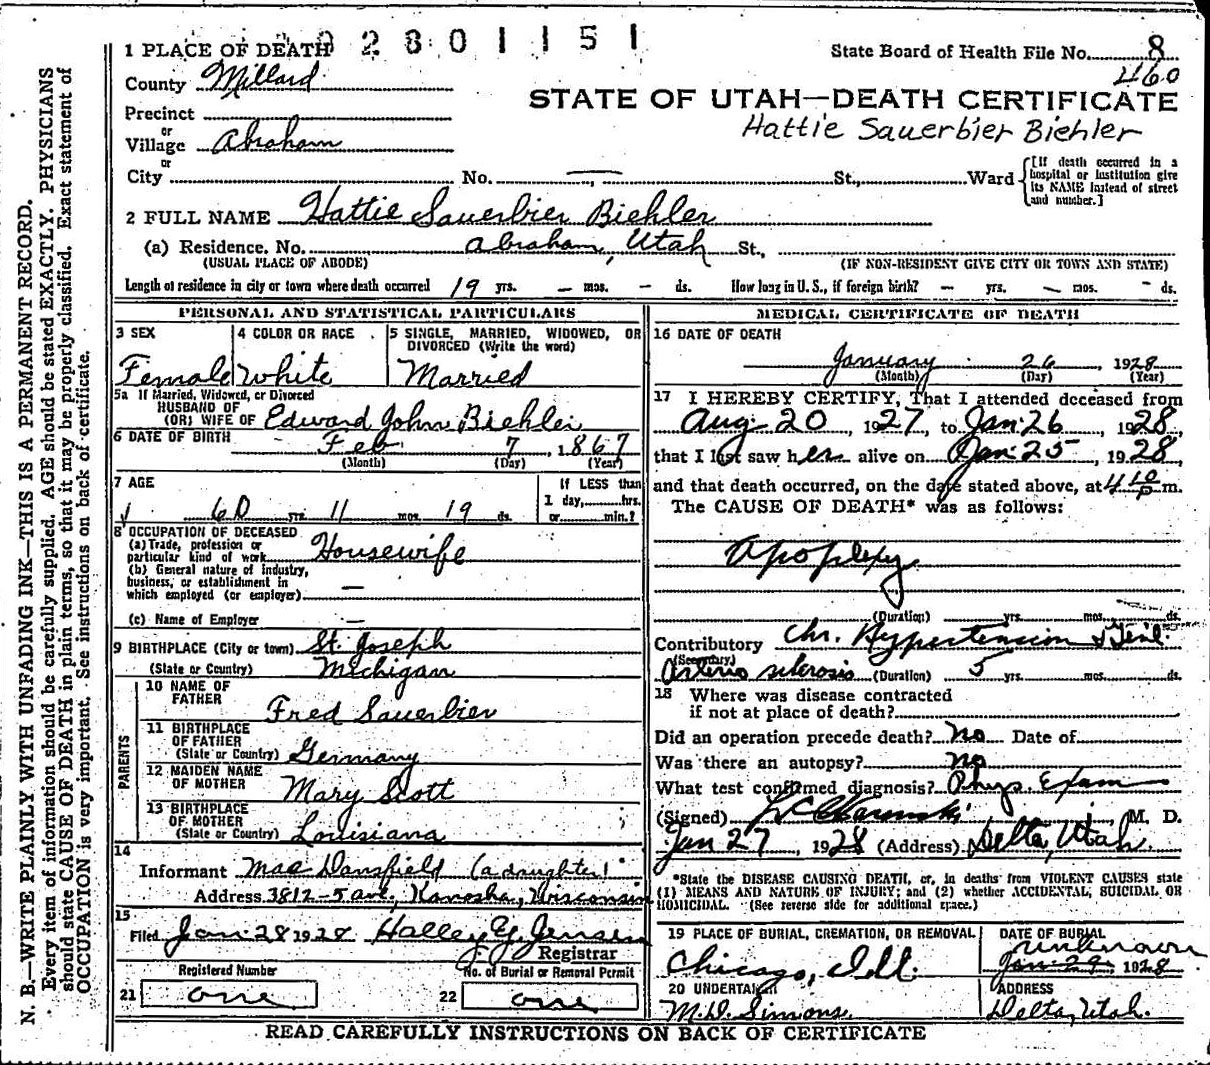 2 8 0 1 1 5 1
1 PLACE OF DEATH
State Board of Health File No. 8
460
County Millard
STATE OF UTAH—DEATH CERTIFICATE
Precinct
Hattie Sauerbier Biehler
or
Village Abraham
or
City No. — St., Ward
[If death occurred in a hospital or institution give its NAME instead of street and number.]
2 FULL NAME Hattie Sauerbier Biehler
(a) Residence. No. Abraham, Utah St.,
(USUAL PLACE OF ABODE) (IF NON-RESIDENT GIVE CITY OR TOWN AND STATE)
Length of residence in city or town where death occurred 19 yrs. — mos. — ds. How long in U. S., if foreign birth? — yrs. — mos. — ds.
PERSONAL AND STATISTICAL PARTICULARS
3 SEX
Female
4 COLOR OR RACE
White
5 SINGLE, MARRIED, WIDOWED, OR
DIVORCED (Write the word)
Married
5a If Married, Widowed, or Divorced
HUSBAND OF
(OR) WIFE OF Edward John Biehler
6 DATE OF BIRTH Feb 7, 1867
(Month) (Day) (Year)
7 AGE
60 yrs 11 mos. 19 ds.
If LESS than
1 day, hrs.
or min.?
8 OCCUPATION OF DECEASED
(a) Trade, profession or
particular kind of work Housewife
(b) General nature of industry,
business, or establishment in
which employed (or employer) —
(c) Name of Employer —
9 BIRTHPLACE (City or town) St. Joseph
(State or Country) Michigan
PARENTS
10 NAME OF
FATHER Fred Sauerbier
11 BIRTHPLACE
OF FATHER
(State or Country) Germany
12 MAIDEN NAME
OF MOTHER Mary Scott
13 BIRTHPLACE
OF MOTHER
(State or Country) Louisiana
14
Informant Mae Dansfield (a daughter)
Address 3812-5 ave, Kanosha, Wisconsin
15
Filed Jan 28 1928 Halley G. Jensen
Registrar
Registered Number No. of Burial or Removal Permit
21 one 22 one
MEDICAL CERTIFICATE OF DEATH
16 DATE OF DEATH
January 26, 1928
(Month) (Day) (Year)
17 I HEREBY CERTIFY, That I attended deceased from
Aug 20, 1927, to Jan 26, 1928,
that I last saw her alive on Jan 25, 1928,
and that death occurred, on the date stated above, at 4 10 P m.
The CAUSE OF DEATH* was as follows:
Apoplexy
(Duration) yrs. mos. ds.
Contributory Chr. Hypertension
(Secondary)
Arterio sclerosis (Duration) 5 yrs. mos. ds.
18 Where was disease contracted
if not at place of death?
Did an operation precede death? no Date of
Was there an autopsy? no
What test confirmed diagnosis? Phys. Exam
(Signed) M. D.
Jan 27, 1928 (Address) Delta, Utah.
*State the DISEASE CAUSING DEATH, or, in deaths from VIOLENT CAUSES state
(1) MEANS AND NATURE OF INJURY; and (2) whether ACCIDENTAL, SUICIDAL OR
HOMICIDAL. (See reverse side for additional space.)
19 PLACE OF BURIAL, CREMATION, OR REMOVAL
Chicago, Ill.
DATE OF BURIAL
unknown
Jan 29, 1928
20 UNDERTAKER
M. D. Simons.
ADDRESS
Delta, Utah.
READ CAREFULLY INSTRUCTIONS ON BACK OF CERTIFICATE
N. B.—WRITE PLAINLY WITH UNFADING INK—THIS IS A PERMANENT RECORD.
Every item of information should be carefully supplied. AGE should be stated EXACTLY. PHYSICIANS
should state CAUSE OF DEATH in plain terms, so that it may be properly classified. Exact statement of
OCCUPATION is very important. See instructions on back of certificate.